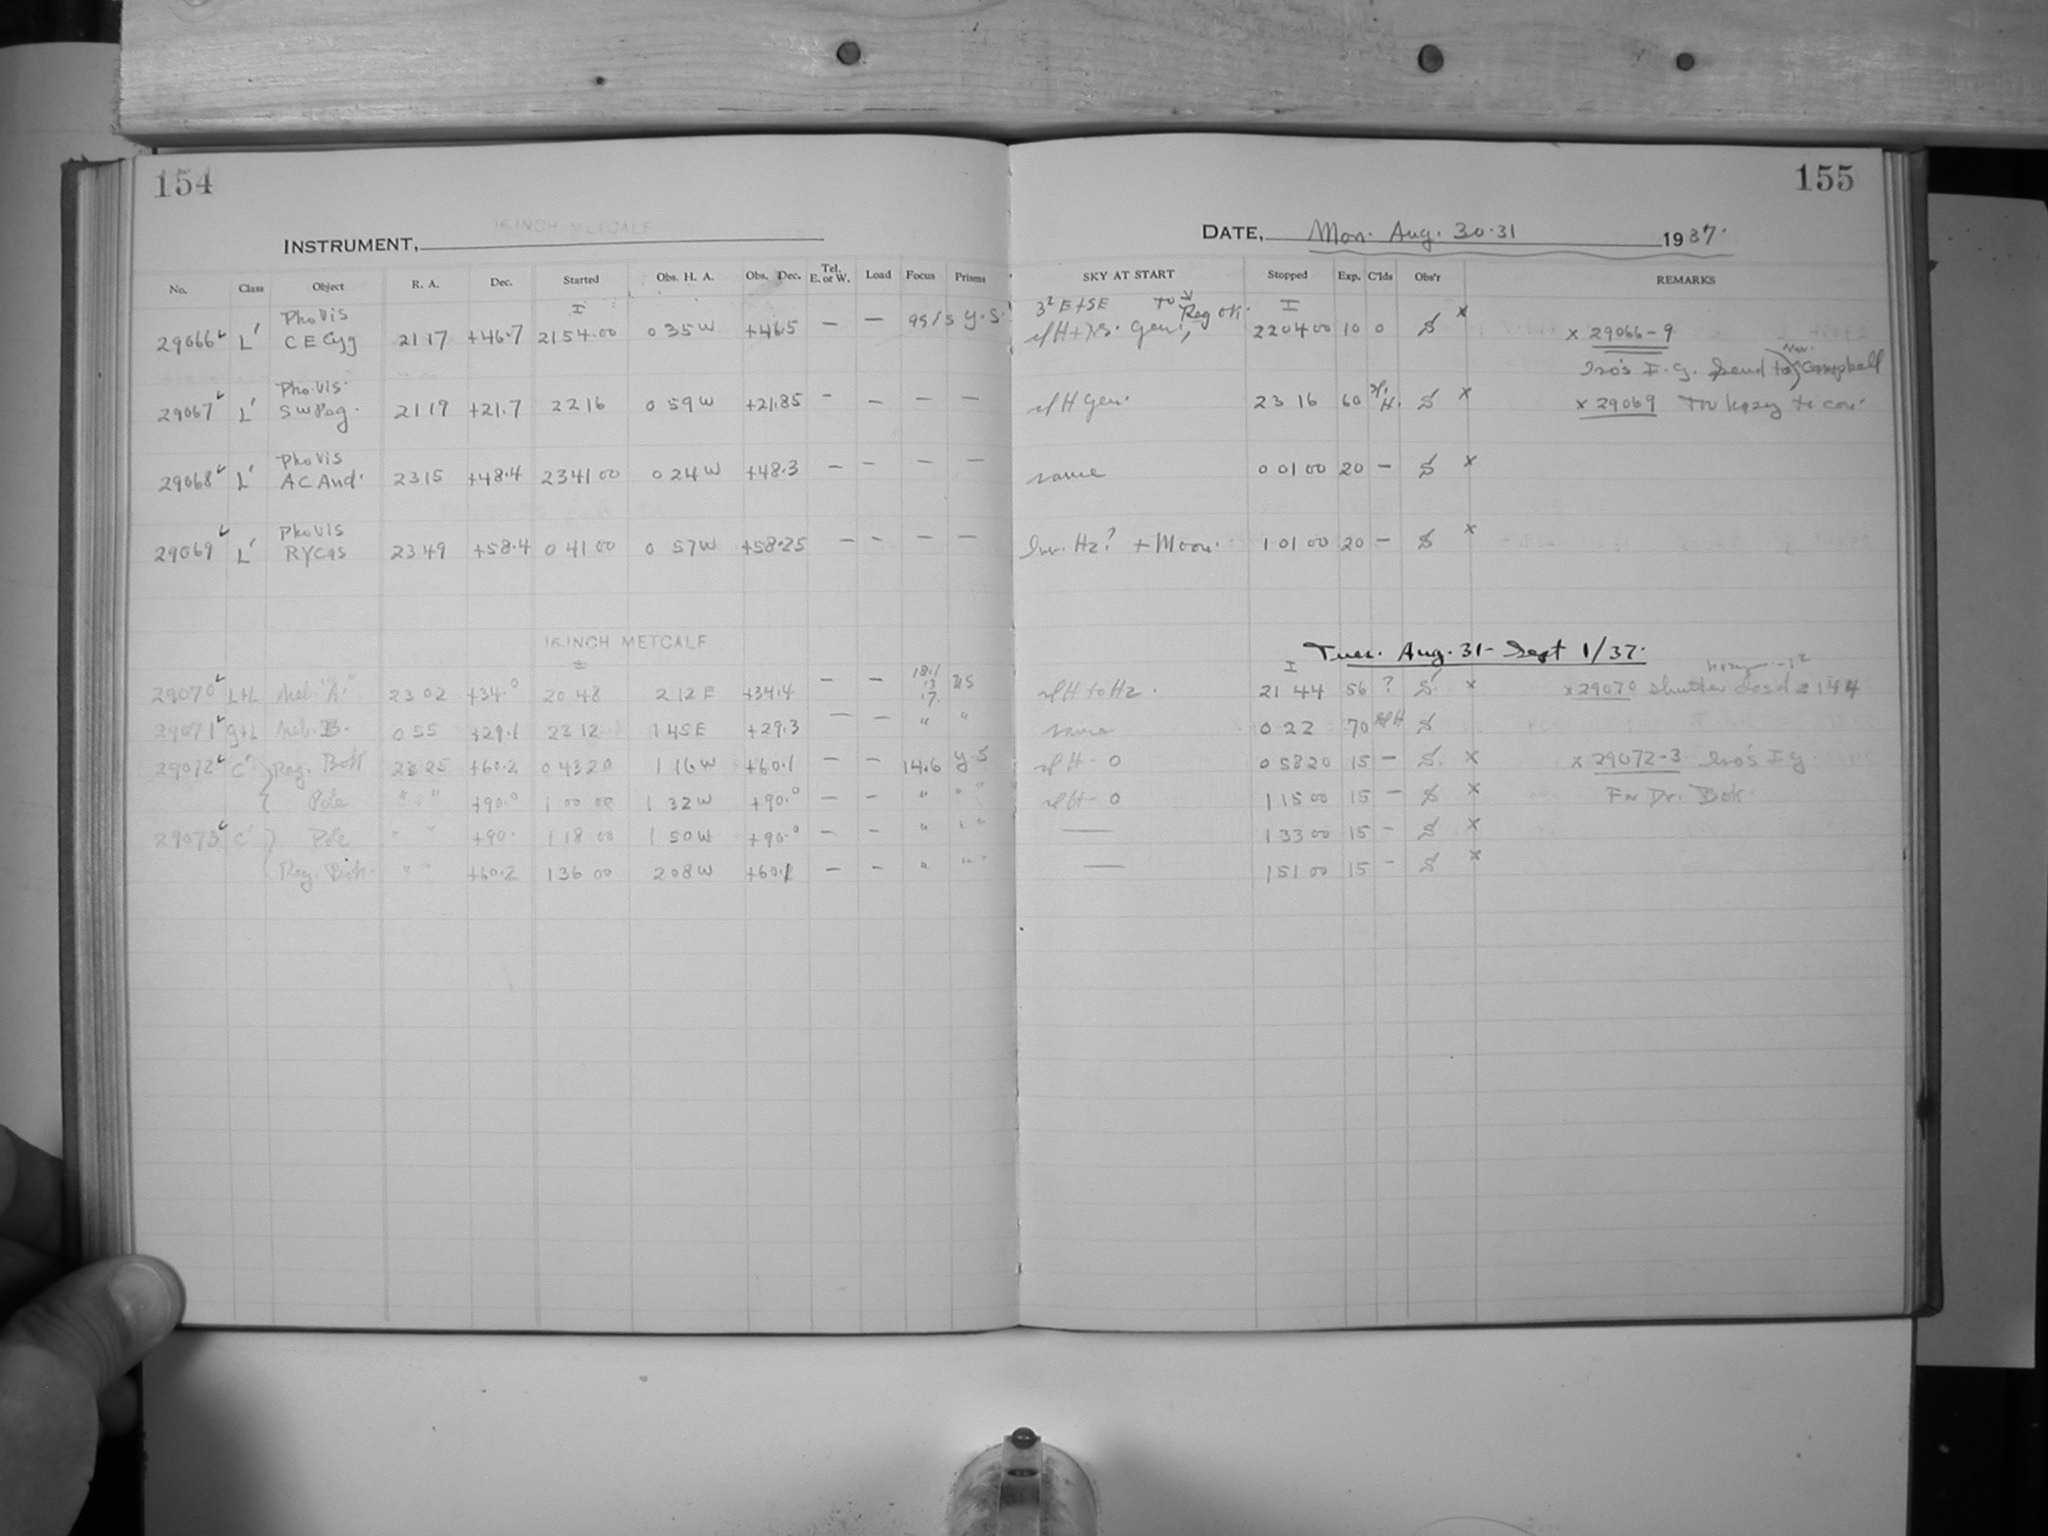 154
155
16-INCH METCALF
INSTRUMENT,
DATE, Mon. Aug. 30-31 1937.
No. Class Object R. A. Dec. Started Obs. H. A. Obs. Dec. Tel. E. or W. Load Focus Prisms SKY AT START Stopped Exp. C'lds Obs'r REMARKS
Phovis I 3² E+SE I
29066 L' C E Cyg 21 17 +46.7 21 54.00 0 35 W +46.5 — — 95/5 Y.S. 22 04 00 10 0 S x x 29066-9
I.G. Send to Mr. Campbell
Phovis
29067 L' SW Peg. 21 19 +21.7 22 16 0 59 W +21.85 - - - - H Gen. 23 16 60 S x x 29069 Too hazy to con.
Phovis
29068 L' AC And. 23 15 +48.4 23 41 00 0 24 W +48.3 - - - - same 0 01 00 20 - S x
Phovis
29069 L' RY Cas 23 49 +58.4 0 41 00 0 57 W +58.25 - - - - Hz? + Moon. 1 01 00 20 - S x
16-INCH METCALF
Tues. Aug. 31 - Sept 1/37.
29070 L+L "A." 23 02 +34.0 20 48 2 12 E +34.4 - - 18.1 13 17. H to Hz. 21 44 56 ? S x x 29070 shutter closd 2144
29071 B. 0 55 +29.1 23 12 1 45 E +29.3 — - " " same 0 22 70 S
29072 C' Reg. Bok +60.2 0 43 20 1 16 W +60.1 - - 14.6 Y-S H-0 0 58 20 15 - S. x x 29072-3
Pole " " +90.0 1 00 00 1 32 W +90.0 - - " " " H-0 1 15 00 15 - S x For Dr. Bok.
29073 C' Pole " " +90. 1 18 00 1 50 W +90.0 - - " " " — 1 33 00 15 - S x
Reg. Bok. " " +60.2 1 36 00 2 08 W +60.1 - - " " " — 1 51 00 15 - S x